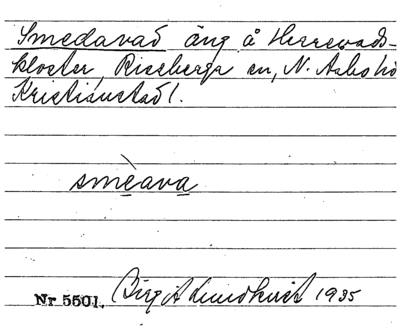 Smedavad äng å Herrevads-
kloster, Riseberga sn, N. Åsbo hd
Kristianstad l.
smèava
Nr 5501. Birgit Lundkvist 1935